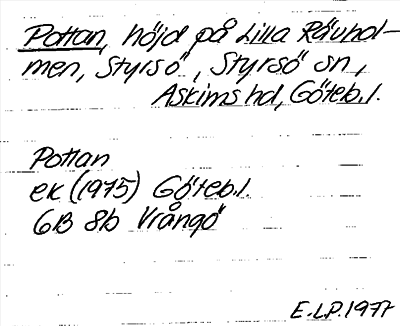 Pottan, höjd på Lilla Rävhol-
men, Styrsö, Styrsö sn,
Askims hd, Göteb.l.
Pottan
ek (1975) Göteb.l.
6B 8b Vrångö
E.LP.1977